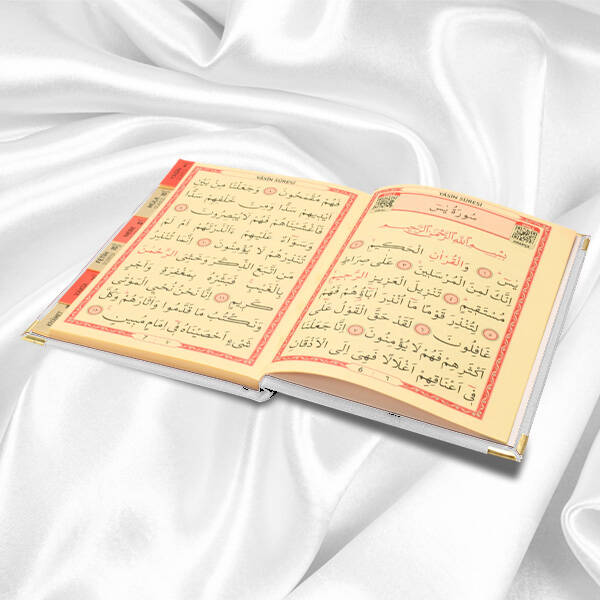 YÂSÎN SÛRESİ
سُورَةُ يٰسٓ
بِسْمِ اللّٰهِ الرَّحْمٰنِ الرَّحِيمِ
يٰسٓ ۝١ وَالْقُرْاٰنِ الْحَكِيمِ ۝٢
اِنَّكَ لَمِنَ الْمُرْسَلِينَ ۝٣ عَلٰى صِرَاطٍ
مُسْتَقِيمٍ ۝٤ تَنْزِيلَ الْعَزِيزِ الرَّحِيمِ ۝٥
لِتُنْذِرَ قَوْمًا مَٓا اُنْذِرَ اٰبَٓاؤُ۬هُمْ فَهُمْ
غَافِلُونَ ۝٦ لَقَدْ حَقَّ الْقَوْلُ عَلٰٓى
اَكْثَرِهِمْ فَهُمْ لَا يُؤْمِنُونَ ۝٧ اِنَّا جَعَلْنَا
فِٓي اَعْنَاقِهِمْ اَغْلَالًا فَهِيَ اِلَى الْاَذْقَانِ
6 ٦
YÂSÎN SÛRESİ
فَهُمْ مُقْمَحُونَ ۝٨ وَجَعَلْنَا مِنْ بَيْنِ
اَيْدِيهِمْ سَدًّا وَمِنْ خَلْفِهِمْ سَدًّا
فَاَغْشَيْنَاهُمْ فَهُمْ لَا يُبْصِرُونَ ۝٩
وَسَوَٓاءٌ عَلَيْهِمْ ءَاَنْذَرْتَهُمْ اَمْ لَمْ
تُنْذِرْهُمْ لَا يُؤْمِنُونَ ۝١٠ اِنَّمَا تُنْذِرُ
مَنِ اتَّبَعَ الذِّكْرَ وَخَشِيَ الرَّحْمٰنَ
بِالْغَيْبِ فَبَشِّرْهُ بِمَغْفِرَةٍ وَاَجْرٍ
كَرِيمٍ ۝١١ اِنَّا نَحْنُ نُحْيِ الْمَوْتٰى
وَنَكْتُبُ مَا قَدَّمُوا وَاٰثَارَهُمْ وَكُلَّ
شَيْءٍ اَحْصَيْنَاهُ فِٓي اِمَامٍ مُبِينٍ ۝١٢
7 ٧